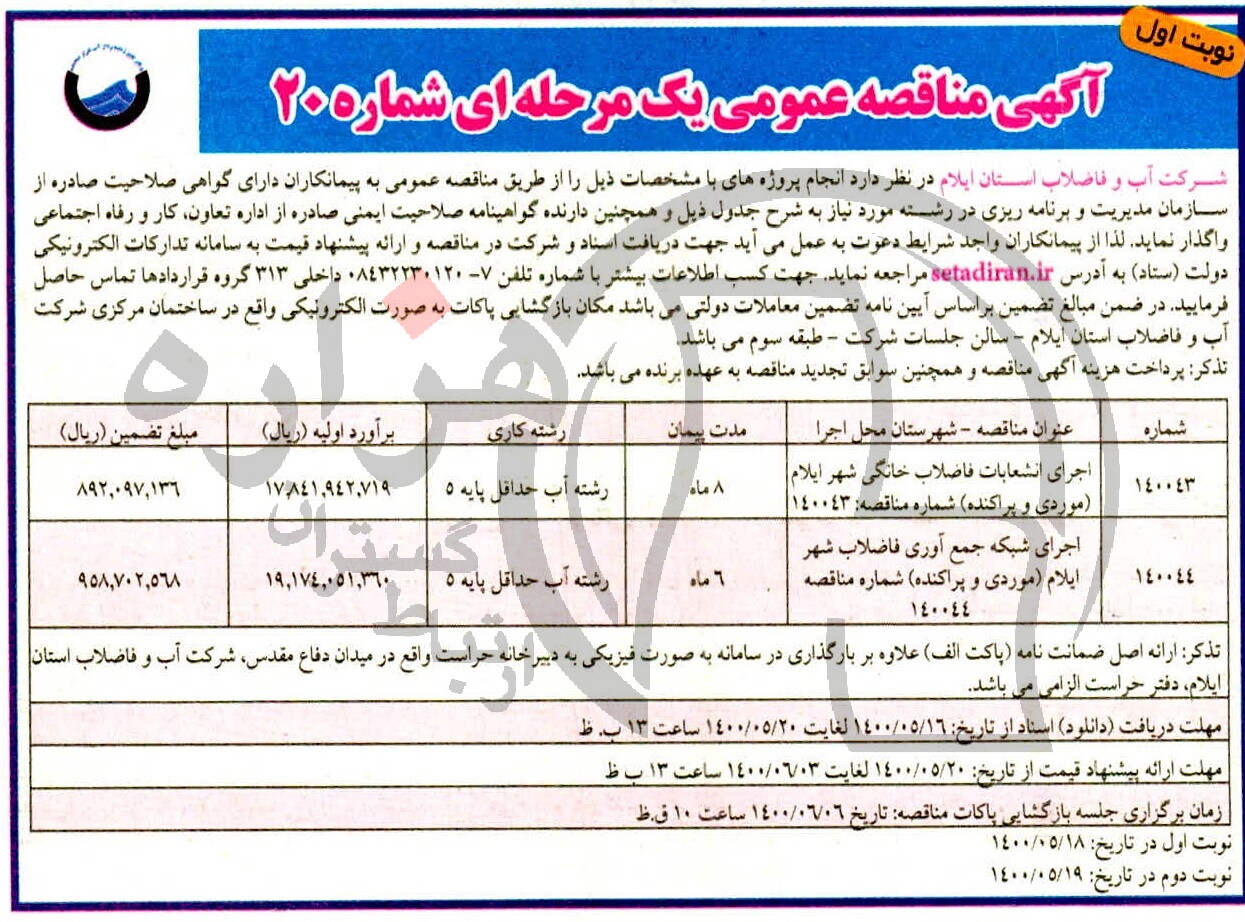 نوبت اول
آگهی مناقصه عمومی یک مرحله ای شماره ۲۰
شرکت آب و فاضلاب استان ایلام در نظر دارد انجام پروژه های با مشخصات ذیل را از طریق مناقصه عمومی به پیمانکاران دارای گواهی صلاحیت صادره از
سازمان مدیریت و برنامه ریزی در رشته مورد نیاز به شرح جدول ذیل و همچنین دارنده گواهینامه صلاحیت ایمنی صادره از اداره تعاون، کار و رفاه اجتماعی
واگذار نماید. لذا از پیمانکاران واجد شرایط دعوت به عمل می آید جهت دریافت اسناد و شرکت در مناقصه و ارائه پیشنهاد قیمت به سامانه تدارکات الکترونیکی
دولت (ستاد) به آدرس setadiran.ir مراجعه نماید. جهت کسب اطلاعات بیشتر با شماره تلفن ۷- ۰۸۴۳۲۲۳۰۱۲۰ داخلی ۳۱۳ گروه قراردادها تماس حاصل
فرمایید. در ضمن مبالغ تضمین براساس آیین نامه تضمین معاملات دولتی می باشد مکان بازگشایی پاکات به صورت الکترونیکی واقع در ساختمان مرکزی شرکت
آب و فاضلاب استان ایلام – سالن جلسات شرکت – طبقه سوم می باشد.
تذکر: پرداخت هزینه آگهی مناقصه و همچنین سوابق تجدید مناقصه به عهده برنده می باشد.
شماره عنوان مناقصه – شهرستان محل اجرا مدت پیمان رشته کاری برآورد اولیه (ریال) مبلغ تضمین (ریال)
۱۴۰۰۴۳ اجرای انشعابات فاضلاب خانگی شهر ایلام
(موردی و پراکنده) شماره مناقصه: ۱۴۰۰۴۳ ۸ ماه رشته آب حداقل پایه ۵ ۱۷,۸۴۱,۹۴۲,۷۱۹ ۸۹۲,۰۹۷,۱۳۶
۱۴۰۰۴۴ اجرای شبکه جمع آوری فاضلاب شهر
ایلام (موردی و پراکنده) شماره مناقصه
۱۴۰۰۴۴ ۶ ماه رشته آب حداقل پایه ۵ ۱۹,۱۷۴,۰۵۱,۳۶۰ ۹۵۸,۷۰۲,۵۶۸
تذکر: ارائه اصل ضمانت نامه (پاکت الف) علاوه بر بارگذاری در سامانه به صورت فیزیکی به دبیرخانه حراست واقع در میدان دفاع مقدس، شرکت آب و فاضلاب استان
ایلام، دفتر حراست الزامی می باشد.
مهلت دریافت (دانلود) اسناد از تاریخ: ۱۴۰۰/۰۵/۱۶ لغایت ۱۴۰۰/۰۵/۲۰ ساعت ۱۳ ب. ظ
مهلت ارائه پیشنهاد قیمت از تاریخ: ۱۴۰۰/۰۵/۲۰ لغایت ۱۴۰۰/۰۶/۰۳ ساعت ۱۳ ب ظ
زمان برگزاری جلسه بازگشایی پاکات مناقصه: تاریخ ۱۴۰۰/۰۶/۰۶ ساعت ۱۰ ق.ظ
نوبت اول در تاریخ: ۱۴۰۰/۰۵/۱۸
نوبت دوم در تاریخ: ۱۴۰۰/۰۵/۱۹
هزاره
گستران
ارتباط